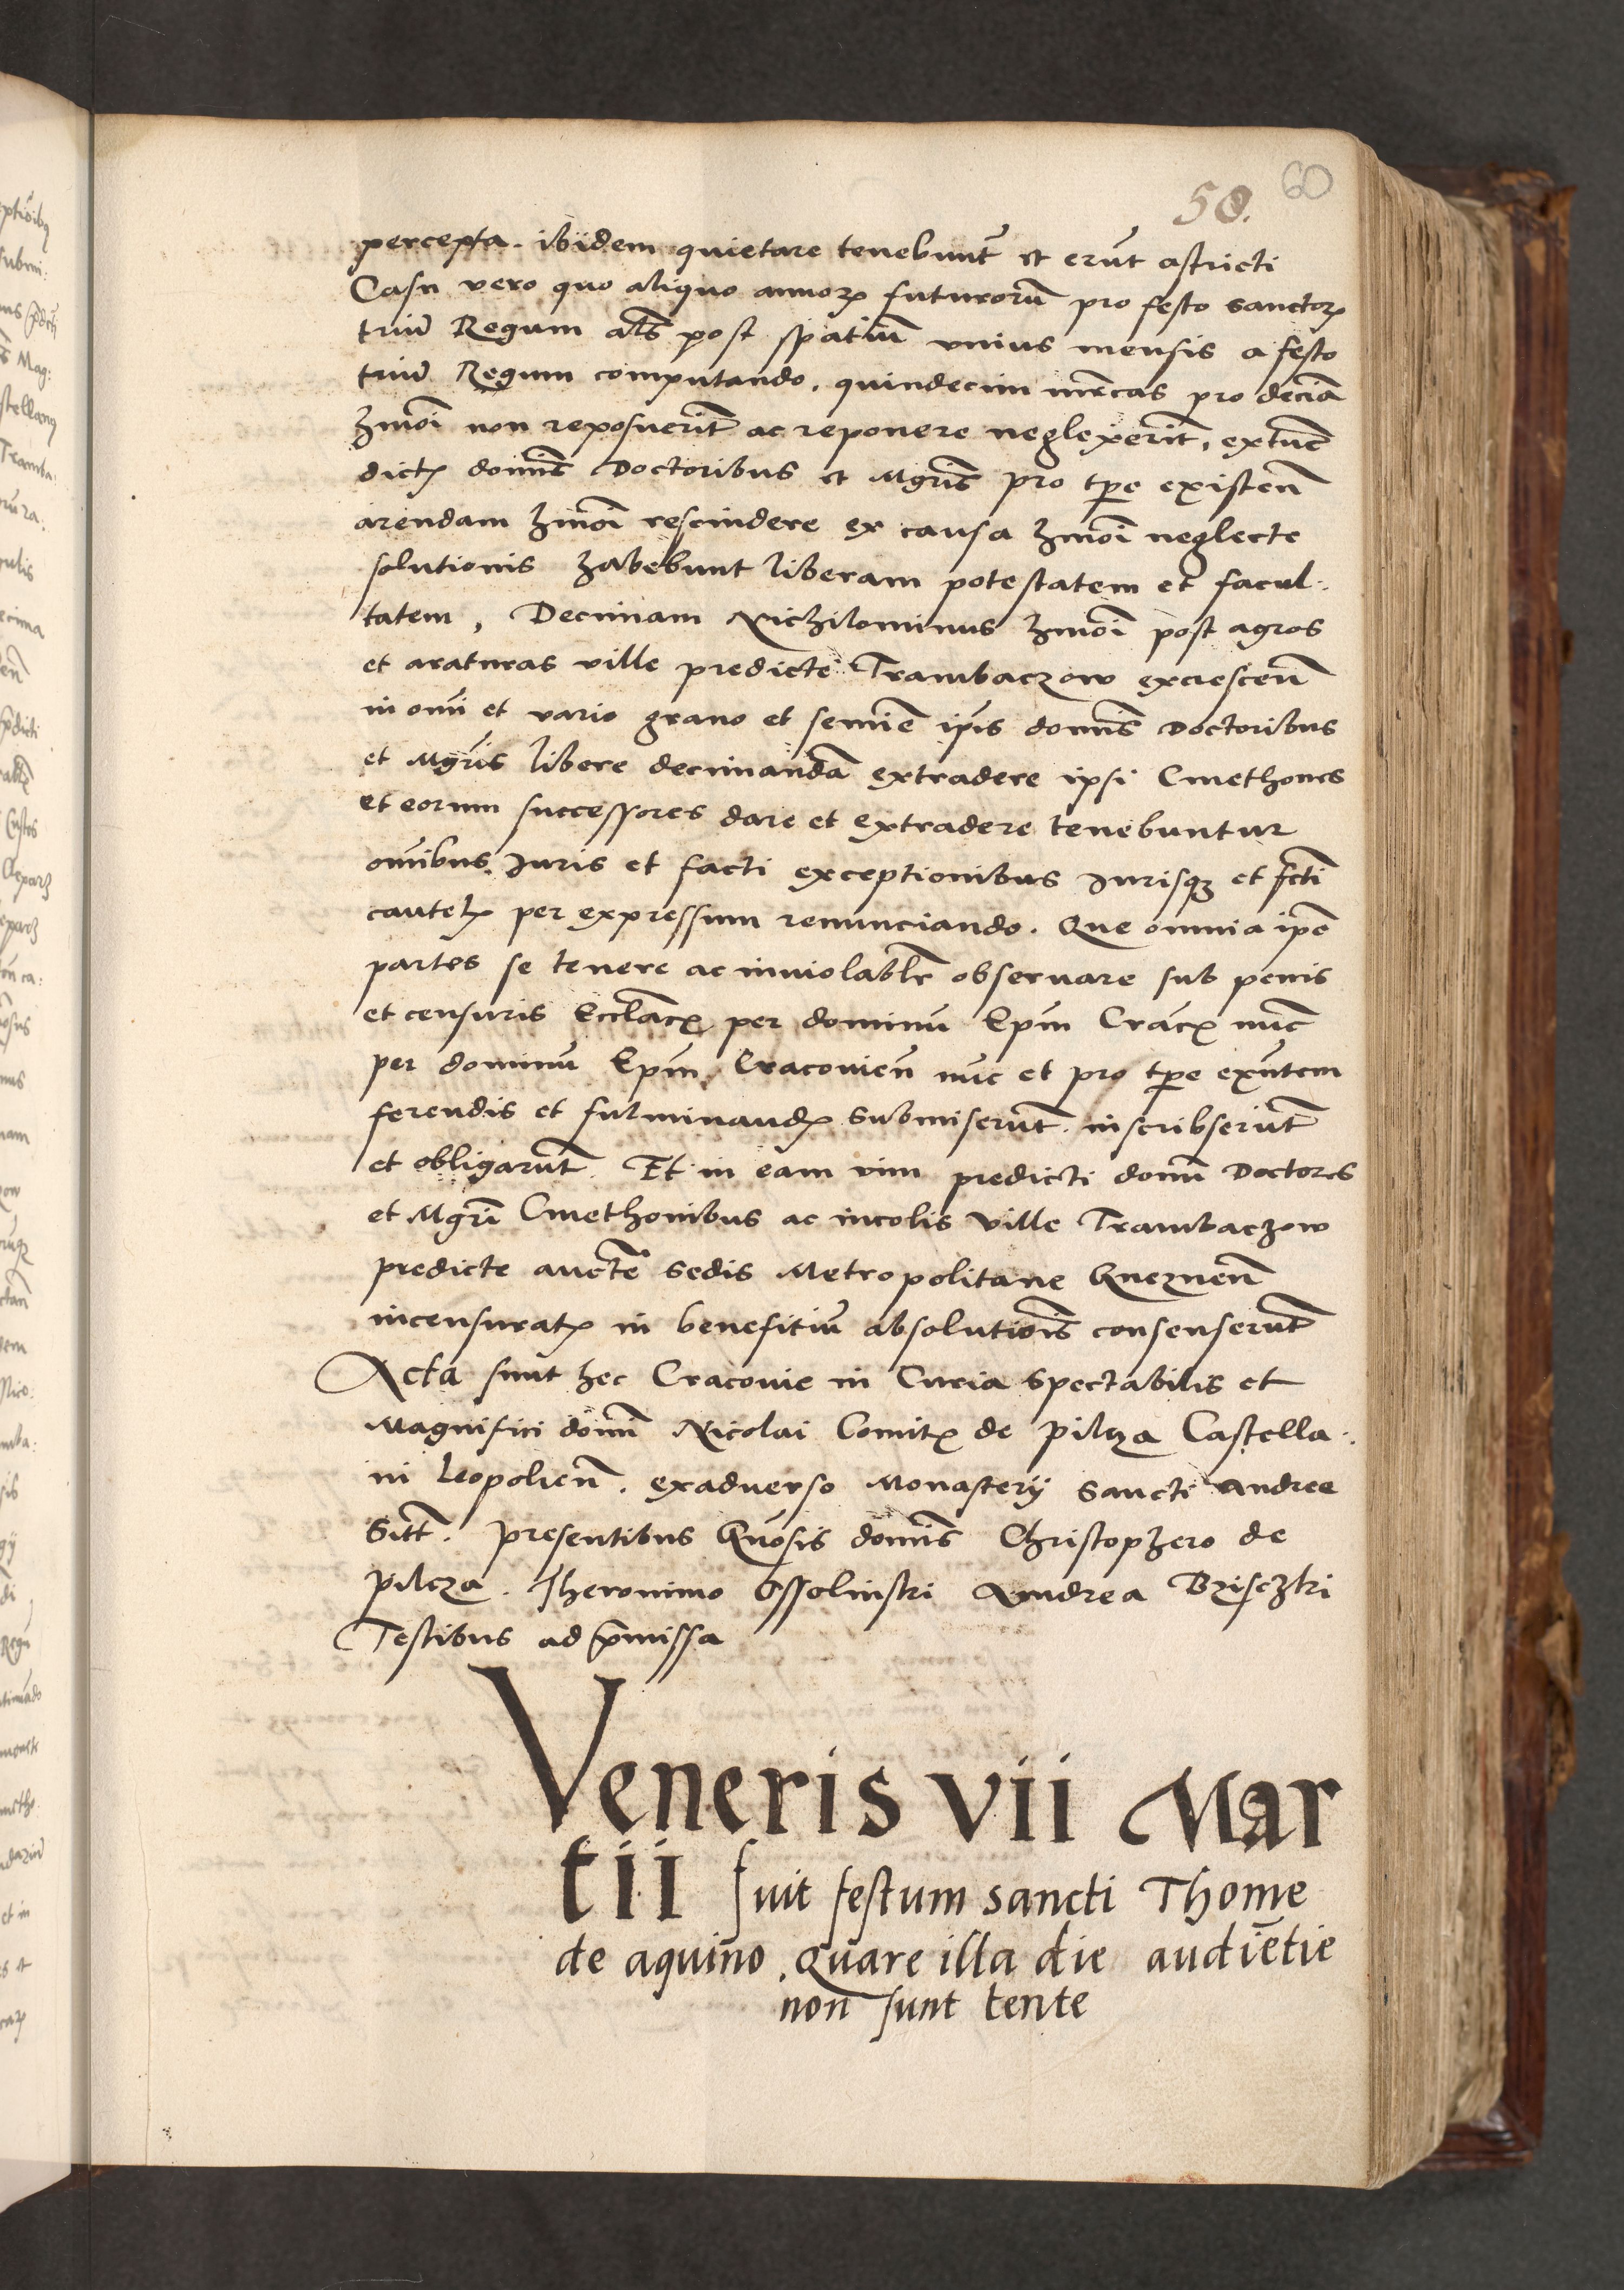 58. 60
percepta. ibidem quietare tenebunt̃ et erũt astricti
Casu vero quo aliquo annorꝫ futurorũ pro festo sanctorꝫ
triũ Regum als̃ post spatiũ vnius mensis a festo
triũ Regum computando. quindecim mr̃cas pro decĩa
hmõi non reposuerint̃ ac reponere neglexerint̃, extũc
dictꝭ domĩs Doctoribus et Mgr̃is pro tp̃e existeñ
arendam hmõi rescindere ex causa hmõi neglecte
solutionis habebunt liberam potestatem et facul-
tatem, Decimam Nichilominus hmõi post agros
et araturas ville predicte Trambaczow excresceñ
in om̃i et vario grano et semĩe ip̃is domĩs Doctoribus
et Mgr̃is libere decimandã extradere ipsi Cmethones
et eorum successores dare et extradere tenebuntur
om̃ibus Iuris et facti exceptionibus Iurisqꝫ et fcti
cautelꝭ per expressum renunciando. Que omnia ip̃e
partes se tenere ac inviolablr̃ observare sub penis
et censuris Eccl̃acꝭ per dominũ Ep̃m Cracꝭ nũc
per dominũ Ep̃m Cracovieñ nũc et pro tp̃e exñtem
ferendis et fulminandꝭ submiserũt. inscribserũt
et obligarũt. Et in eam vim predicti domĩ Doctores
et Mgr̃i Cmethonibus ac incolis ville Trambaczow
predicte aucte̅ sedis Metropolitane Gnezneñ
incensuratꝭ in benefitiũ absolutiõis consenserũt
Acta sunt hec Cracovie in Curia spectabilis et
Magnifici domĩ Nicolai Comitꝭ de Pilcza Castella-
ni Leopolieñ. exadverso Monasterij sancti Andree
Sitt̃. presentibus Gñosis domĩs Christophero de
Pilcza. Iheronimo Ossolinski Andrea Brzisczki
Testibus ad p̃missa
Veneris vii Mar
tii fuit festum sancti Thome
de aquino, quare illa die audiẽtie
non sunt tente